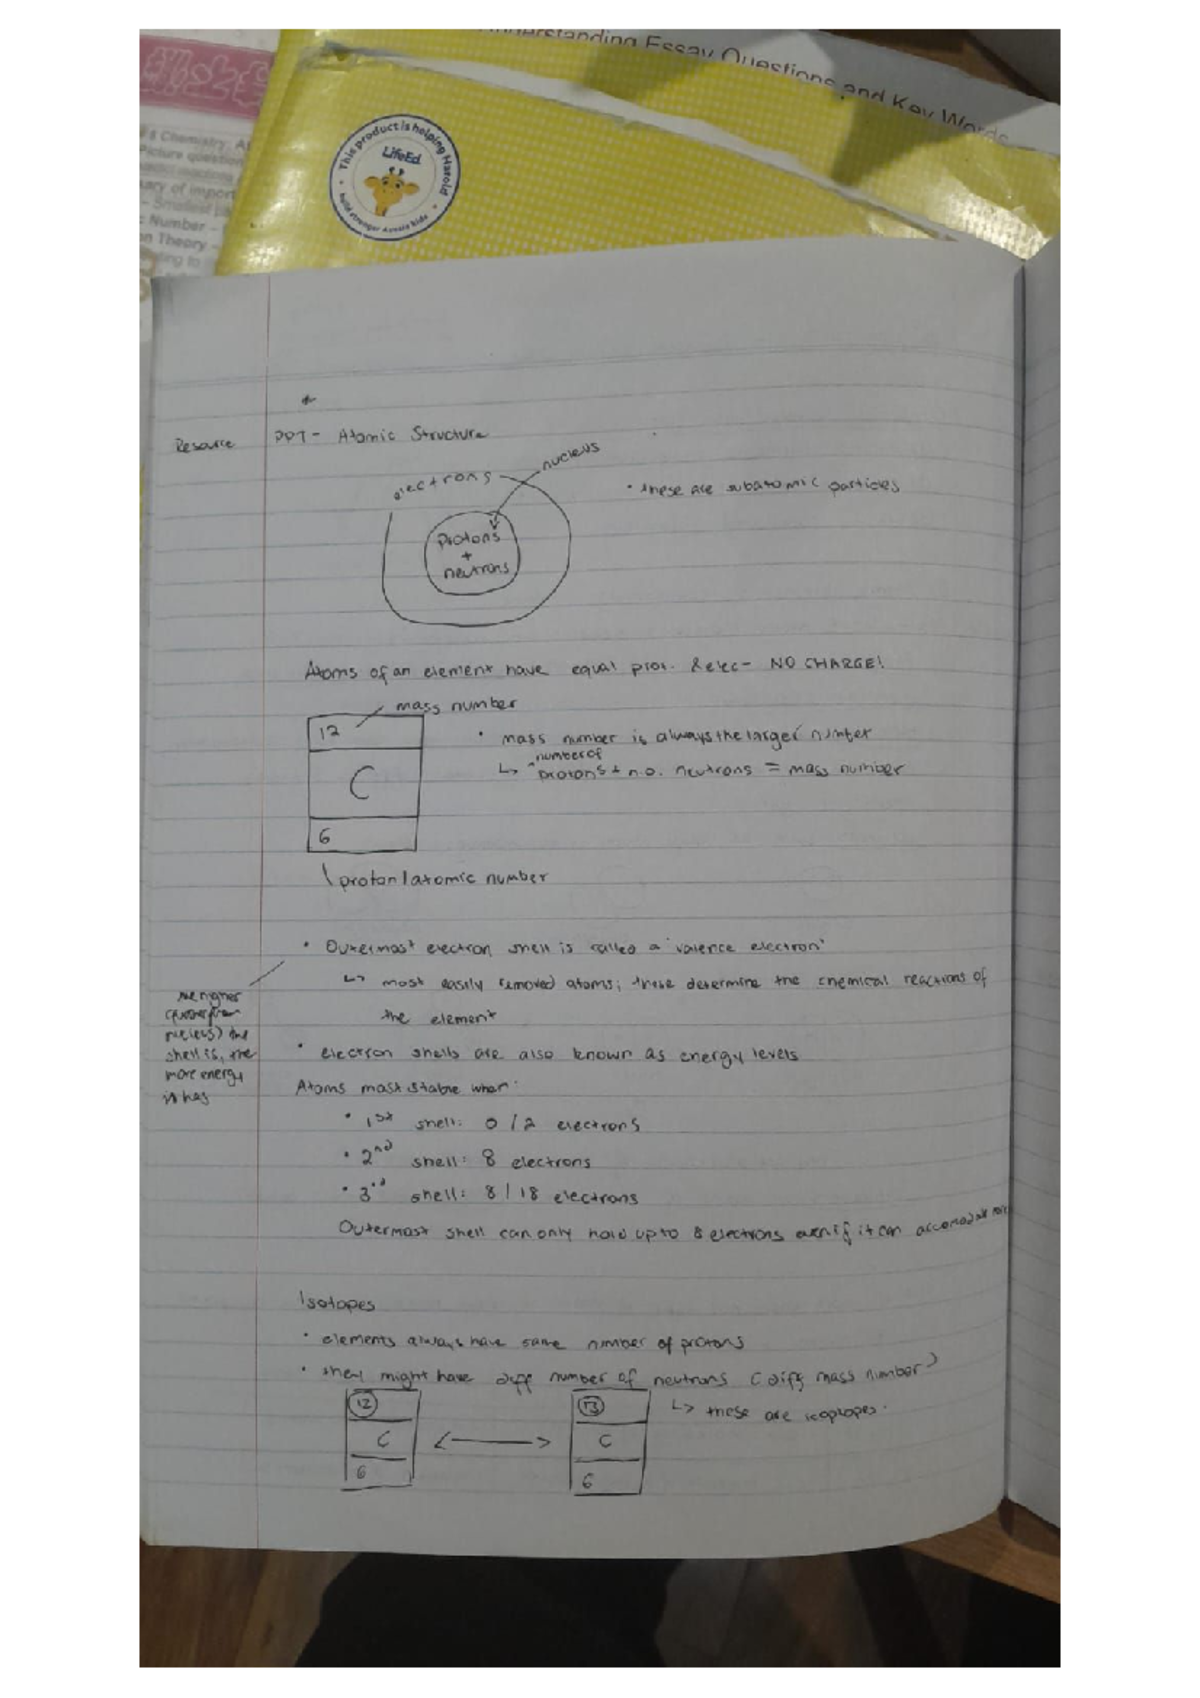 Understanding Essay Questions and Key Words
This product is helping Harold
LifeEd
build stronger Aussie kids
8 Chemistry
Picture question
ary of import
- Smallest pa
c Number -
on Theory -
ing to
Resource
PPT - Atomic Structure
electrons
nucleus
• these are subatomic particles
Protons
+
neutrons
Atoms of an element have equal prot. & elec - NO CHARGE!
mass number
12
C
6
• mass number is always the larger number
number of
↳ ^protons + n.o. neutrons = mass number
proton/atomic number
• Outermost electron shell is called a 'valence electron'
↳ most easily removed atoms; these determine the chemical reactions of
the element
the higher
nucleus) the
shell is, the
more energy
is has
• electron shells are also known as energy levels
Atoms most stable when:
• 1st shell: 0 / 2 electrons
• 2nd shell: 8 electrons
• 3rd shell: 8 / 18 electrons
Outermost shell can only hold up to 8 electrons even if it can accomodate more
Isotopes
• elements always have same number of protons
• they might have diff number of neutrons (diff mass number)
↳ these are isoptopes.
12
C
6
13
C
6